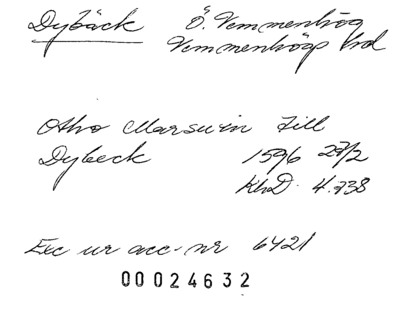 Dybäck Ö. Vemmenhög
Vemmenhögs hrd
Otho Marswin till
Dybeck 1596 27/2
KhD. 4.738
Exc ur acc.nr 6421
00024632